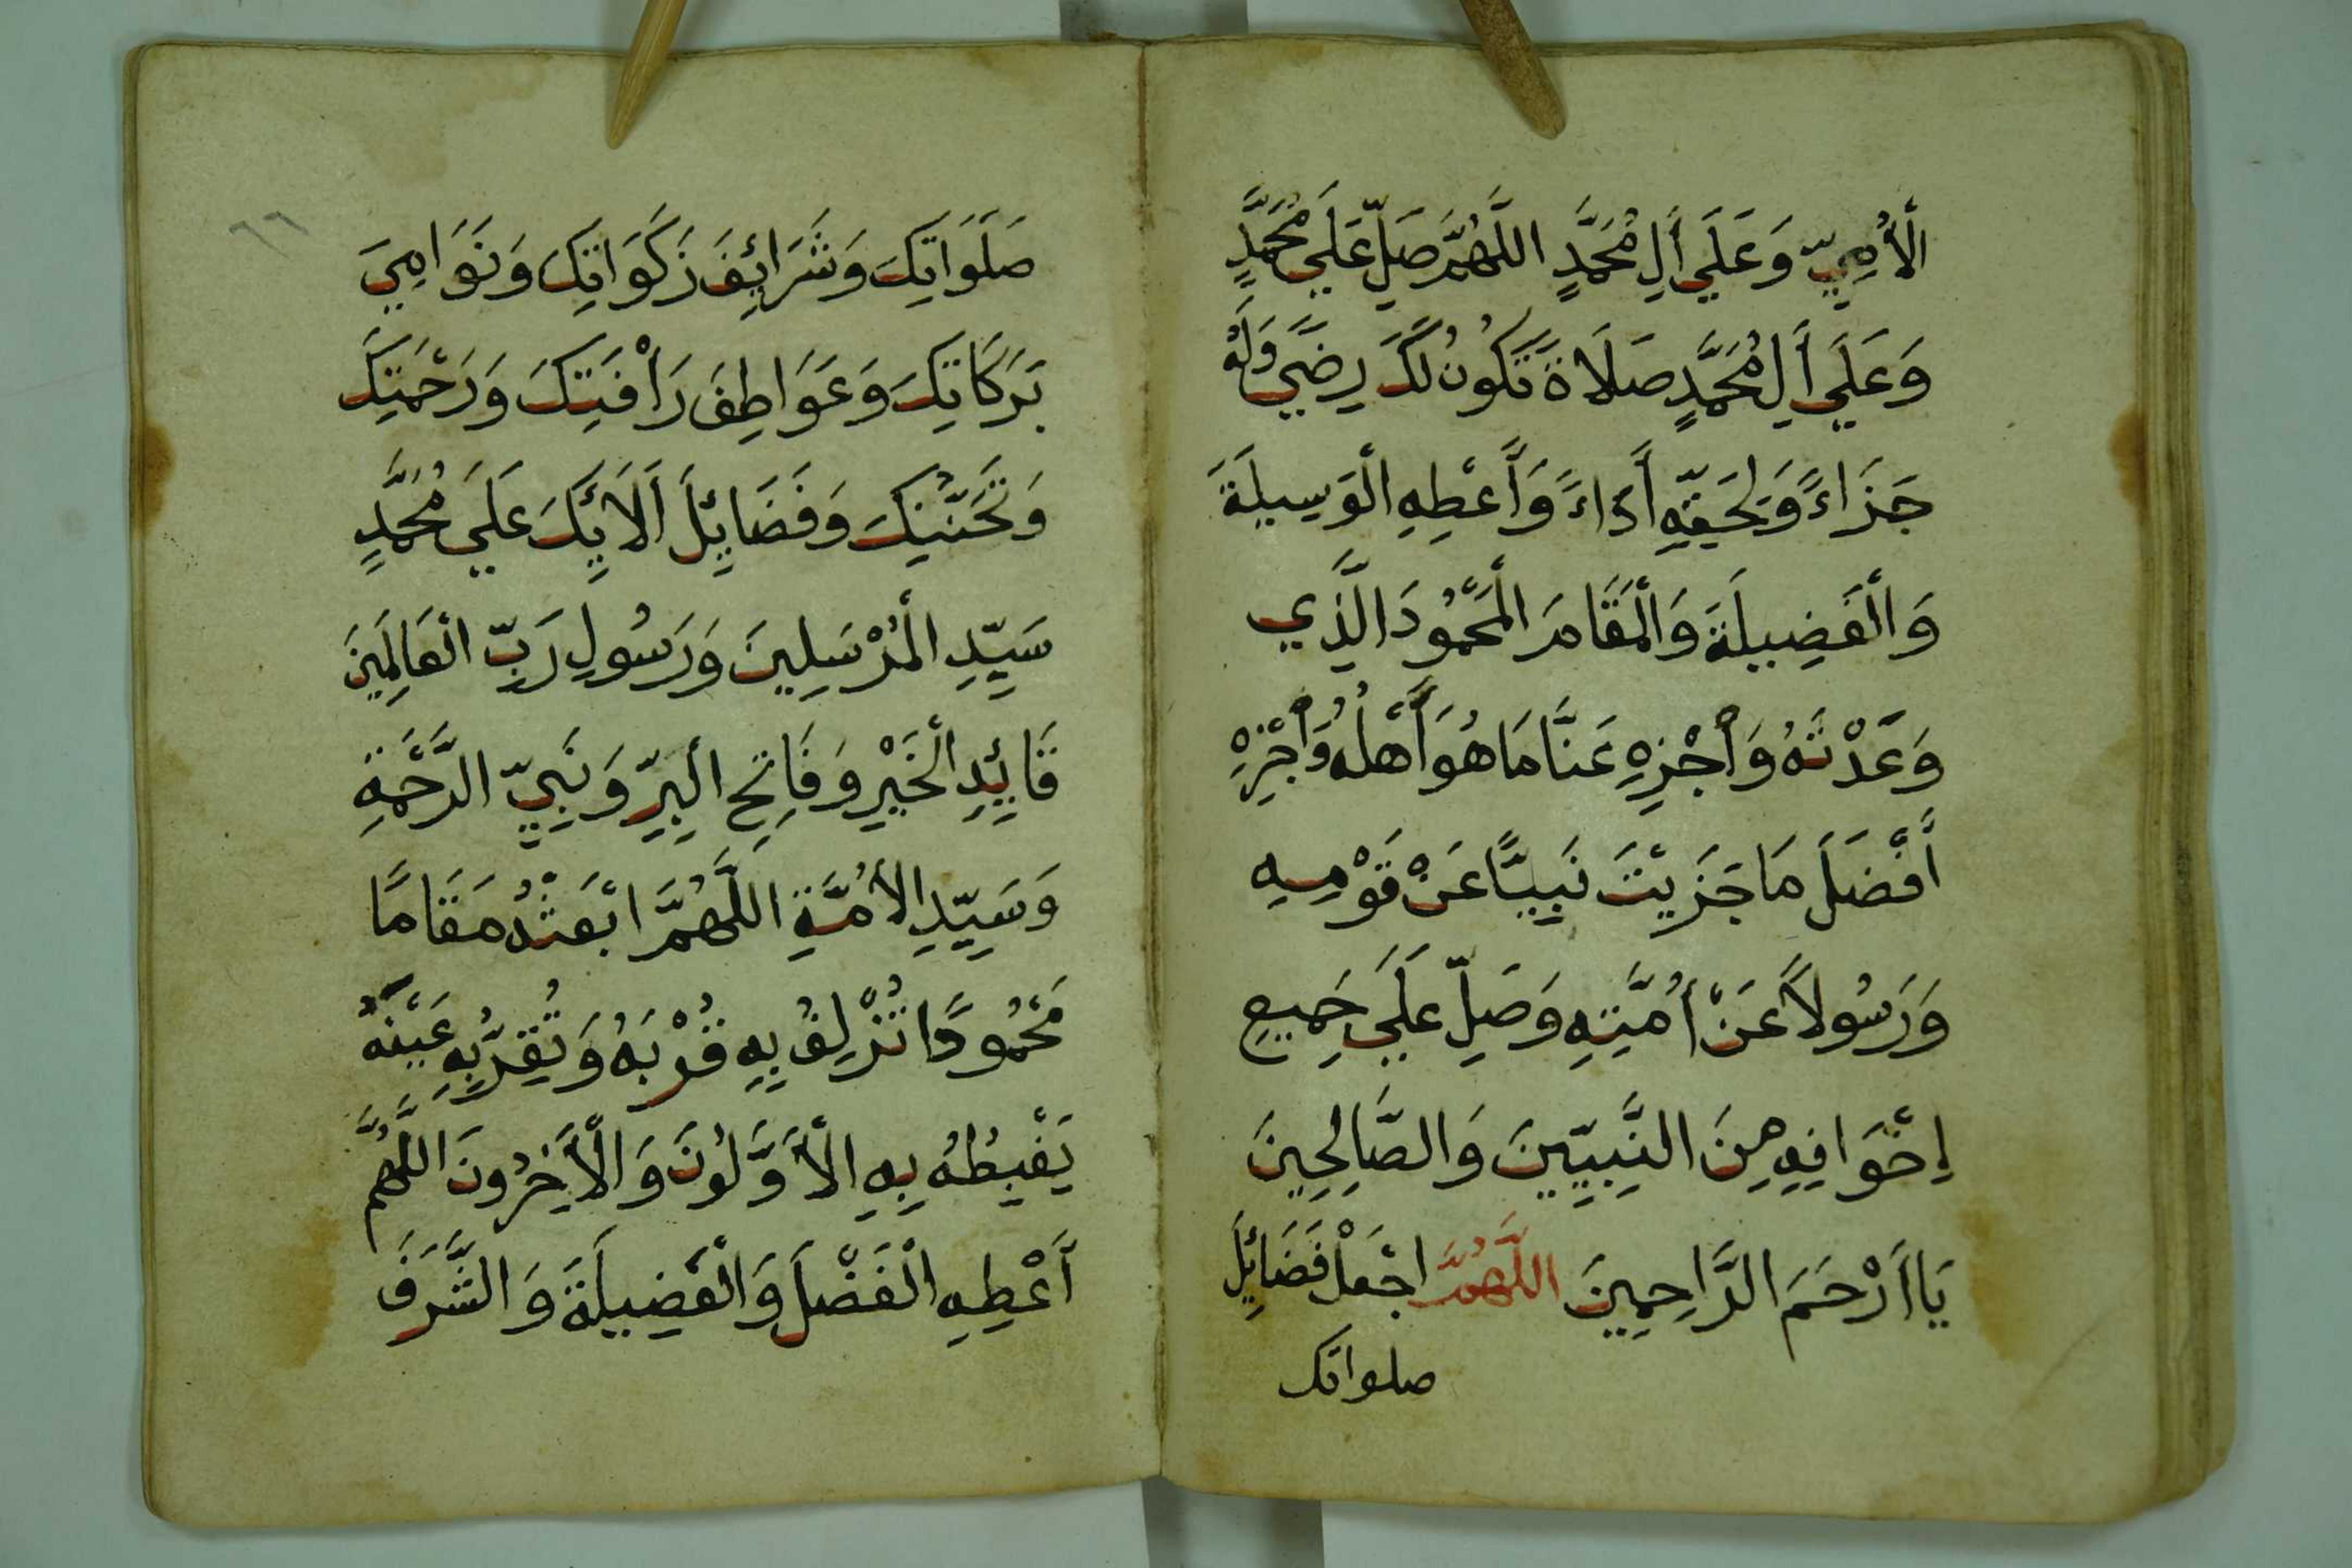 الْأُمِيِّ وَعَلَي أَلِ مُحَمَّدٍ اللَّهُمَّ صَلِّ عَلَي مُحَمَّدٍ
وَعَلَي أَلِ مُحَمَّدٍ صَلَاةً تَكُونُ لَكَ رِضًي وَلَهُ
جَزَاءً وَلِحَقِّهِ أَدَاءً وَأَعْطِهِ الْوَسِيلَةَ
وَالْفَضِيلَةَ وَالْمَقَامَ الْمَحْمُودَ الَّذِي
وَعَدْتَهُ وَأَجْزِهِ عَنَّا مَا هُوَ أَهْلُهُ وَأَجْزِهِ
أَفْضَلَ مَا جَزَيْتَ نَبِيًّا عَنْ قَوْمِهِ
وَرَسُولاً عَنْ أُمَّتِهِ وَصَلِّ عَلَي جَمِيعِ
إِخْوَانِهِ مِنَ النَّبِيِّينَ وَالصَّالِحِينَ
يَا أَرْحَمَ الرَّاحِمِينَ اللَّهُمَّ اجْعَلْ فَضَائِلَ
صلواتك
صَلَوَاتِكَ وَشَرَائِفَ زَكَوَاتِكَ وَنَوَامِيَ
بَرَكَاتِكَ وَعَوَاطِفَ رَأْفَتِكَ وَرَحْمَتِكَ
وَتَحَنُّنِكَ وَفَضَائِلَ أَلَائِكَ عَلَي مُحَمَّدٍ
سَيِّدِ الْمُرْسَلِينَ وَرَسُولِ رَبِّ الْعَالَمِينَ
قَائِدِ الْخَيْرِ وَفَاتِحِ الْبِرِّ وَنَبِيِّ الرَّحْمَةِ
وَسَيِّدِ الْأُمَّةِ اللَّهُمَّ ابْعَثْهُ مَقَامًا
مَحْمُودًا تُزْلِفُ بِهِ قُرْبَهُ وَتُقِرُّ بِهِ عَيْنَهُ
يَغْبِطُهُ بِهِ الْأَوَّلُونَ وَالْأَخِرُونَ اللَّهُمَّ
أَعْطِهِ الْفَضْلَ وَالْفَضِيلَةَ وَالشَّرَفَ
٦٦